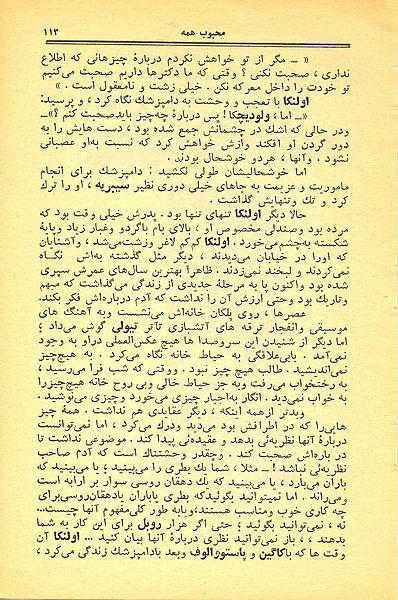 محبوب همه ۱۱۳
« ــ مگر از تو خواهش نکردم دربارهٔ چیزهائی که اطلاع
نداری ، صحبت نکنی ؟ وقتی که ما دکترها داریم صحبت می‌کنیم
تو خودت را داخل معرکه نکن . خیلی زشت و نامعقول است . »
اولنکا با تعجب و وحشت به دامپزشک نگاه کرد ، و پرسید:
« ــ اما ، ولودیچکا ! پس دربارهٔ چه‌چیز باید صحبت کنم ؟ »ــ
ودر حالی که اشک در چشمانش جمع شده بود ، دست هایش را به
دور گردن او افکند وازش خواهش کرد که نسبت به‌او عصبانی
نشود . وآنها ، هردو خوشحال بودند .
اما خوشحالیشان طولی نکشید : دامپزشک برای انجام
ماموریت و عزیمت به جاهای خیلی دوری نظیر سیبریه ، او را ترک
کرد و تک وتنهایش گذاشت .
حالا دیگر اولنکا تنهای تنها بود . پدرش خیلی وقت بود که
مرده بود وصندلی مخصوص او ، بالای بام باگردو وغبار زیاد وپایهٔ
شکسته به‌چشم می‌خورد . اولنکا کم‌کم لاغر وزشت‌می‌شد ، وآشنایان
که اورا در خیابان می‌دیدند ، دیگر مثل گذشته به‌اش نگاه
نمی‌کردند و لبخند نمی‌زدند . ظاهراً بهترین سال‌های عمرش سپری
شده بود واکنون پا به مرحلهٔ جدیدی از زندگی می‌گذاشت که مبهم
وتاریک بود وحتی ارزش آن را نداشت که آدم درباره‌اش فکر بکند.
عصرها ، روی پلکان خانه‌اش می‌نشست وبه آهنگ های
موسیقی وانفجار ترقه های آتشبازی تآتر تیولی گوش می‌داد ؛
اما دیگر از شنیدن این سروصداها هیچ عکس‌العملی دراو به وجود
نمی‌آمد . بابی‌علاقگی به حیاط خانه نگاه می‌کرد . به هیچ‌چیز
نمی‌اندیشید . طالب هیچ چیز نبود . ووقتی که شب فرا می‌رسید ،
به رختخواب می‌رفت وبه جز حیاط خالی وبی روح خانه هیچ‌چیزرا
به خواب نمی‌دید . انگار به‌اجبار چیزی می‌خورد وچیزی می‌نوشید .
وبدتر ازهمه اینکه ، دیگر عقایدی هم نداشت . همهٔ چیز
هایی‌را که در اطرافش بود می‌دید ودرک می‌کرد ، اما نمی‌توانست
دربارهٔ آنها نظریه‌ئی بدهد و عقیده‌ئی پیدا کند . موضوعی نداشت تا
در باره‌اش صحبت کند . وچقدر وحشتناک است که آدم صاحب
نظریه‌ئی نباشد ! ــ مثلا ، شما یک بطری را می‌بینید ؛ یا می‌بینید که
باران می‌بارد ، یا می‌بینید که یک دهقان روسی سوار بر ارابه است
ومی‌راند . اما نمیتوانید بگوئیدکه بطری یاباران یادهقان‌روسی‌برای
چه کاری خوب ومناسب هستند،ویابه طور کلی‌مفهوم آنها چیست...
نه ، نمی‌توانید بگوئید ؛ حتی اگر هزار روبل برای این کار به شما
بدهند ، ، باز نمی‌توانید نظری دربارهٔ آنها بیان کنید ... اولنکا آن
وقت ها که باکاگین و پاستورالوف وبعد بادامپزشک زندگی می‌کرد ،